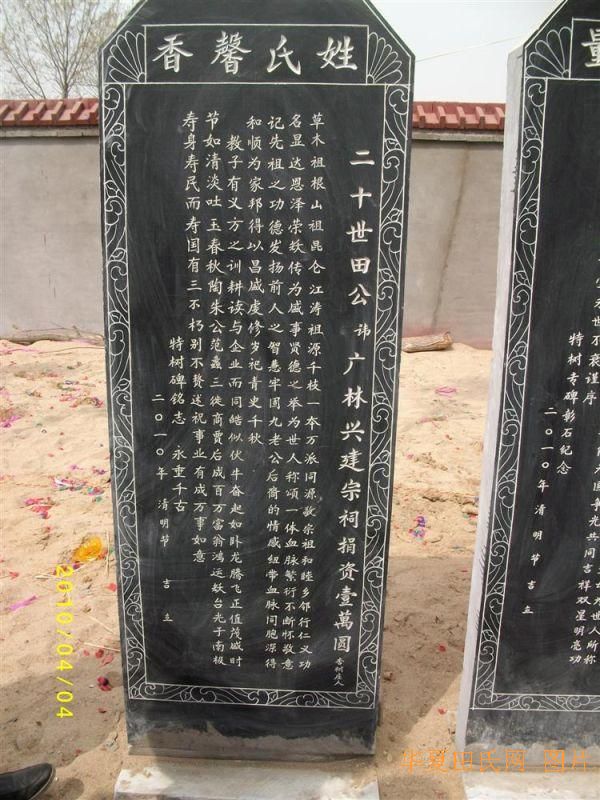 姓氏馨香
二十世田公讳广林兴建宗祠捐资壹萬圆
草木祖根山祖昆仑江涛祖源千枝一本万派同源敬宗祖和睦乡邻行仁义功
名显达恩泽荣族传为盛事贤德之举为世人称颂一体血脉繁衍不断怀敬意
记先祖之功德发扬前人之智慧牢固九老公后裔的情感纽带血脉同胞深得
和顺为家邦得以昌盛虔修岁祀青史千秋
教子有义方之训耕读与企业而同皓似伏牛奋起如卧龙腾飞正值茂盛时
节如清淡吐玉春秋陶朱公范蠡三徙商贾后成百万富翁鸿运鼓台光于南极
寿身寿民而寿国有三不朽别不赘述祝事业有成万事如意
特树碑铭志 永垂千古
二〇一〇年 清明节 吉立
世不衰谨序
特树专碑彰石纪念
二〇一〇年 清明节 吉立
共同吉祥双星明亮功
世人所称
2010/04/04
华夏田氏网 图片